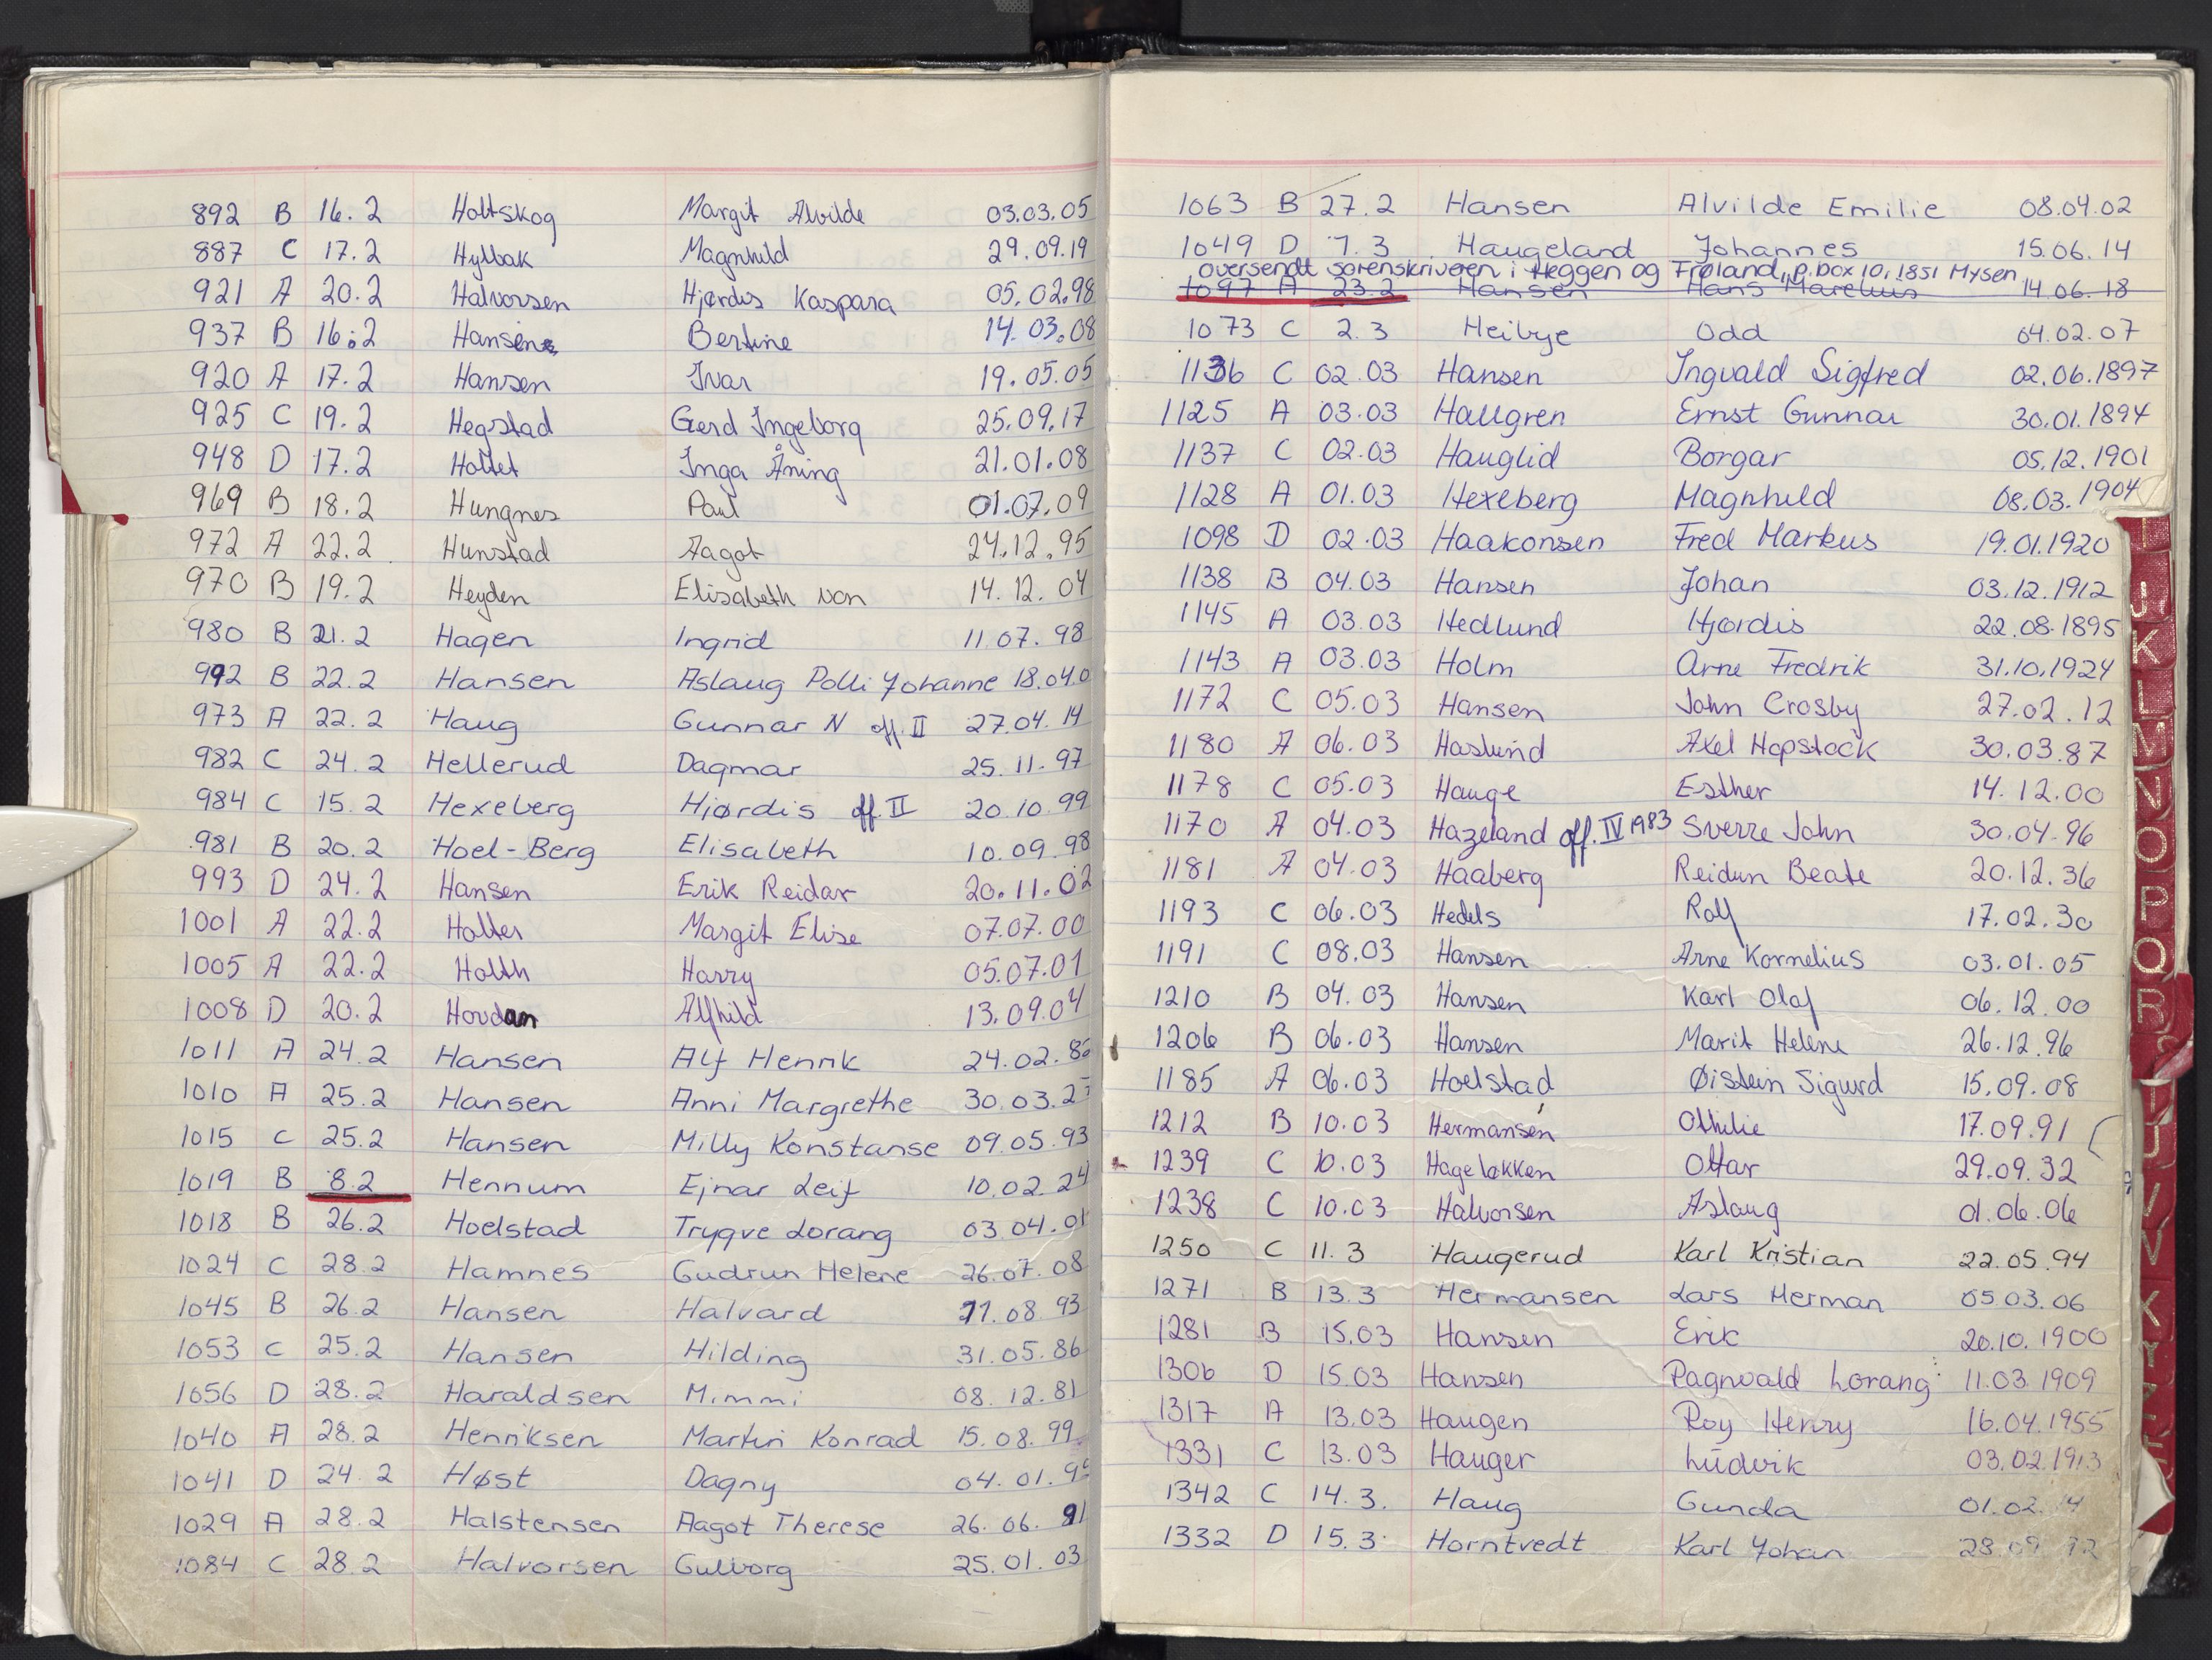 892 B 16.2 Holtskog Margit Alvilde 03.03.05
887 C 17.2 Hylbak Magnhild 29.09.19
921 A 20.2 Halvorsen Hjørdis Kaspara 05.02.98
937 B 16.2 Hansen Bertine 14.03.08
920 A 17.2 Hansen Ivar 19.05.05
925 C 19.2 Hegstad Gerd Ingeborg 25.09.17
948 D 17.2 Holtet Inga Åning 21.01.08
969 B 18.2 Hungnes Paul 01.07.09
972 A 22.2 Hunstad Aagot 24.12.95
970 B 19.2 Heyden Elisabeth von 14.12.04
980 B 21.2 Hagen Ingrid 11.07.98
992 B 22.2 Hansen Aslaug Polli Johanne 18.04.0
973 A 22.2 Haug Gunnar N off. II 27.04.14
982 C 24.2 Hellerud Dagmar 25.11.97
984 C 15.2 Hexeberg Hjørdis off. II 20.10.99
981 B 20.2 Hoel-Berg Elisabeth 10.09.98
993 D 24.2 Hansen Erik Reidar 20.11.02
1001 A 22.2 Holter Margit Elise 07.07.00
1005 A 22.2 Holth Harry 05.07.01
1008 D 20.2 Hovdan Alfhild 13.09.04
1011 A 24.2 Hansen Alf Henrik 24.02.86
1010 A 25.2 Hansen Anni Margrethe 30.03.2
1015 C 25.2 Hansen Milly Konstanse 09.05.93
1019 B 8.2 Hennum Ejnar Leif 10.02.24
1018 B 26.2 Hoelstad Trygve Lorang 03.04.01
1024 C 28.2 Hamnes Gudrun Helene 26.07.08
1045 B 26.2 Hansen Halvard 11.08.93
1053 C 25.2 Hansen Hilding 31.05.86
1056 D 28.2 Haraldsen Mimmi 08.12.81
1040 A 28.2 Henriksen Martin Konrad 15.08.99
1041 D 24.2 Høst Dagny 04.01.9
1029 A 28.2 Halstensen Aagot Therese 26.06.91
1084 C 28.2 Halvorsen Gulborg 25.01.03
1063 B 27.2 Hansen Alvilde Emilie 08.04.02
1049 D 1.3 Haugeland Johannes 15.06.14
oversendt sorenskriveren i Heggen og Frøland, p.box 10, 1851 Mysen
1097 A 23.2 Hansen Hans Marelius 14.06.18
1073 C 2.3 Heibye Odd 04.02.07
1136 C 02.03 Hansen Ingvald Sigfred 02.06.1897
1125 A 03.03 Hallgren Ernst Gunnar 30.01.1894
1137 C 02.03 Hauglid Borgar 05.12.1901
1128 A 01.03 Hexeberg Magnhild 08.03.1904
1098 D 02.03 Haakonsen Fred Markus 19.01.1920
1138 B 04.03 Hansen Johan 03.12.1912
1145 A 03.03 Hedlund Hjørdis 22.08.1895
1143 A 03.03 Holm Arne Fredrik 31.10.1924
1172 C 05.03 Hansen John Crosby 27.02.12
1180 A 06.03 Haslund Axel Hopstock 30.03.87
1178 C 05.03 Hauge Esther 14.12.00
1170 A 04.03 Hazeland off. IV 1983 Sverre John 30.04.96
1181 A 04.03 Haaberg Reidun Beate 20.12.36
1193 C 06.03 Hedels Rolf 17.02.30
1191 C 08.03 Hansen Arne Kornelius 03.01.05
1210 B 04.03 Hansen Karl Olaf 06.12.00
1206 B 06.03 Hansen Marit Helene 26.12.96
1185 A 06.03 Hoelstad Øistein Sigurd 15.09.08
1212 B 10.03 Hermansen Othilie 17.09.91
1239 C 10.03 Hageløkken Ottar 29.09.32
1238 C 10.03 Halvorsen Aslaug 01.06.06
1250 C 11.3 Haugerud Karl Kristian 22.05.94
1271 B 13.3 Hermansen Lars Herman 05.03.06
1281 B 15.03 Hansen Erik 20.10.1900
1306 D 15.03 Hansen Ragnvald Lorang 11.03.1909
1317 A 13.03 Haugen Roy Henry 16.04.1955
1331 C 13.03 Hauger Ludvik 03.02.1913
1342 C 14.3. Haug Gunda 01.02.14
1332 D 15.3 Horntvedt Karl Johan 28.09.92
I
J
K
L
M
N
O
P
Q
R
U
V
X